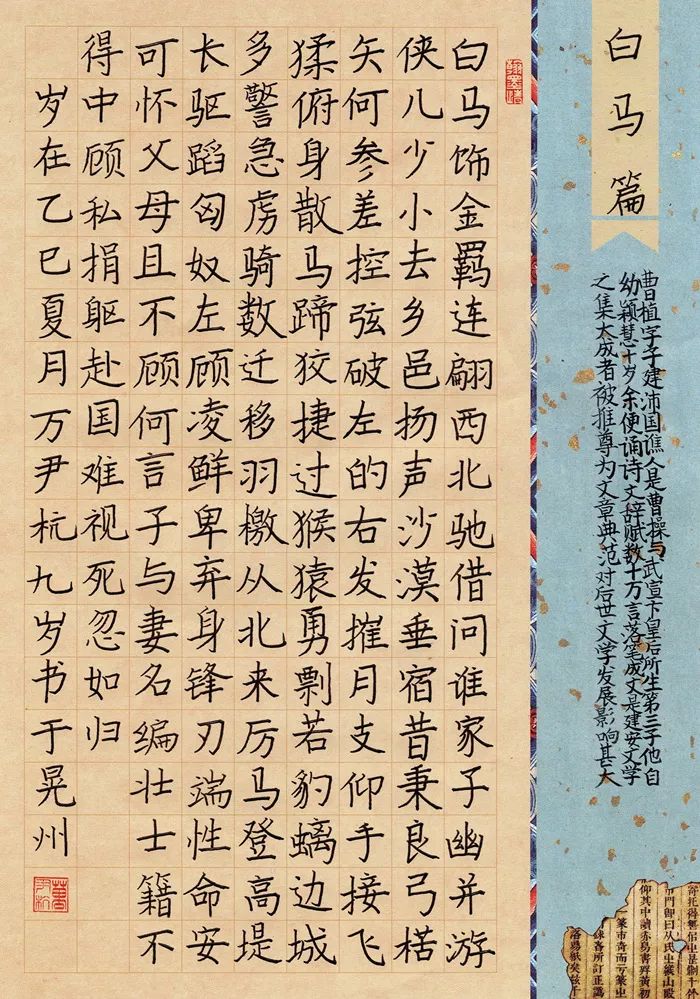 白马篇
曹植字子建沛国谯人是曹操与武宣卞皇后所生第三子他自
幼颖慧十岁余便诵诗文辞赋数十万言落笔成文是建安文学
之集大成者被推尊为文章典范对后世文学发展影响甚大
白马饰金羁连翩西北驰借问谁家子幽并游
侠儿少小去乡邑扬声沙漠垂宿昔秉良弓楛
矢何参差控弦破左的右发摧月支仰手接飞
猱俯身散马蹄狡捷过猴猿勇剽若豹螭边城
多警急虏骑数迁移羽檄从北来厉马登高堤
长驱蹈匈奴左顾凌鲜卑弃身锋刃端性命安
可怀父母且不顾何言子与妻名编壮士籍不
得中顾私捐躯赴国难视死忽如归
岁在乙巳夏月万尹杭九岁书于晃州